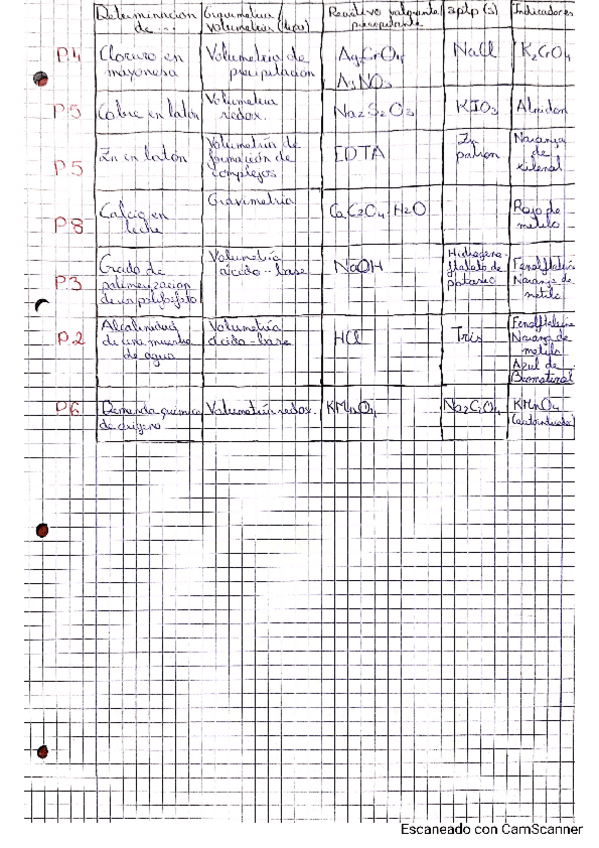 Determinación de ... Gravimetría / volumetría (tipo) Reactivo valorante / precipitante sptp (s) Indicadores
P.4 Cloruro en mayonesa Volumetría de precipitación AgNO3 NaCl K2CrO4
P5 Cobre en latón Volumetría redox. Na2S2O3 KIO3 Almidón
P5 Zn en latón Volumetría de formación de complejos EDTA Zn patrón Naranja de xilenol
P8 Calcio en leche Gravimetría CaC2O4 H2O Rojo de metilo
P3 Grado de polimerización de un polifosfato Volumetría ácido-base NaOH Hidrógeno ftalato de potasio Fenolftaleína Naranja de metilo
P2 Alcalinidad de una muestra de agua Volumetría ácido-base HCl Tris Fenolftaleína Naranja de metilo Azul de Bromotimol
P6 Demanda química de oxígeno Volumetría redox. KMnO4 Na2C2O4 KMnO4 (autoindicador)
Escaneado con CamScanner